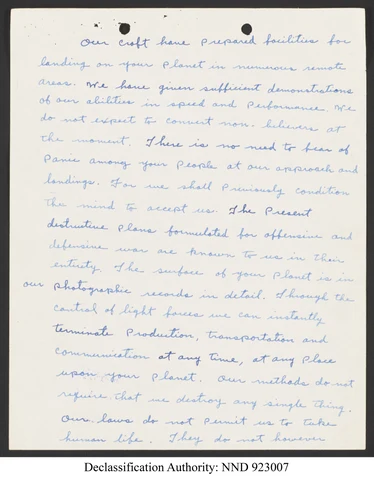 Our craft have prepared facilities for
landing on your planet in numerous remote
areas. We have given sufficient demonstrations
of our abilities in speed and performance. We
do not expect to convert non-believers at
the moment. There is no need to fear of
panic among your people at our approach and
landings. For we shall previously condition
the mind to accept us. The present
destructive plans formulated for offensive and
defensive war are known to us in their
entirety. The surface of your planet is in
our photographic records in detail. Through the
control of light forces we can instantly
terminate production, transportation and
communication at any time, at any place
upon your planet. Our methods do not
require that we destroy any single thing.
Our laws do not permit us to take
human life. They do not however
Declassification Authority: NND 923007